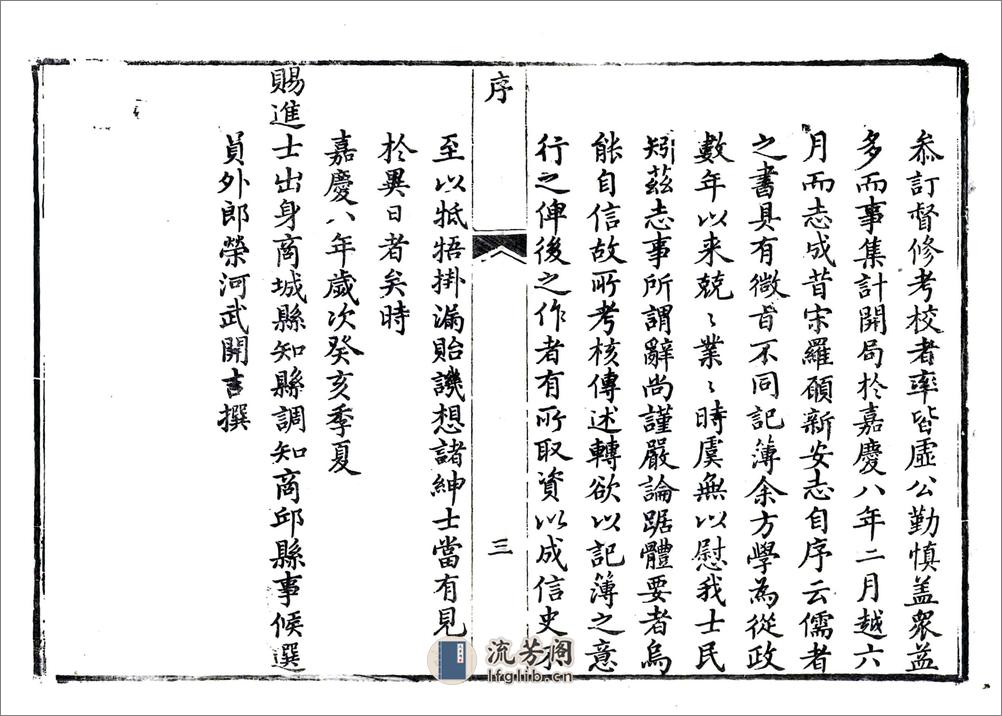 叅訂督修考校者率皆虛公勤慎盖衆益
多而事集計開局於嘉慶八年二月越六
月而志成昔宋羅願新安志自序云儒者
之書具有微旨不同記簿余方學為從政
數年以来兢〻業〻時虞無以慰我士民
矧茲志事所謂辭尚謹嚴論踞體要者烏
能自信故所考核傳述轉欲以記簿之意
行之俾後之作者有所取資以成信史
序
三
至以牴牾掛漏貽譏想諸紳士當有見
於異日者矣時
嘉慶八年歲次癸亥季夏
賜進士出身商城縣知縣調知商邱縣事候選
員外郎榮河武開吉撰
流芳阁
lfglib.cn